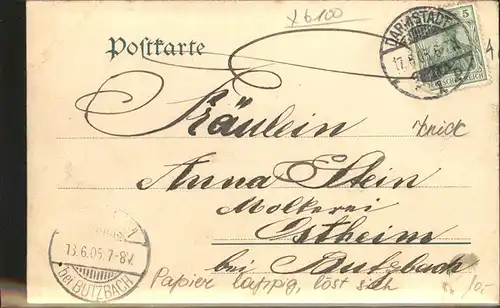 x6100
Postkarte
DARMSTADT
5
Fräulein
knick
Anna Stein
Molkerei
Ostheim
bei Butzbach
13.6.05.7-8V.
bei BUTZBACH
Papier lappig, löst sich